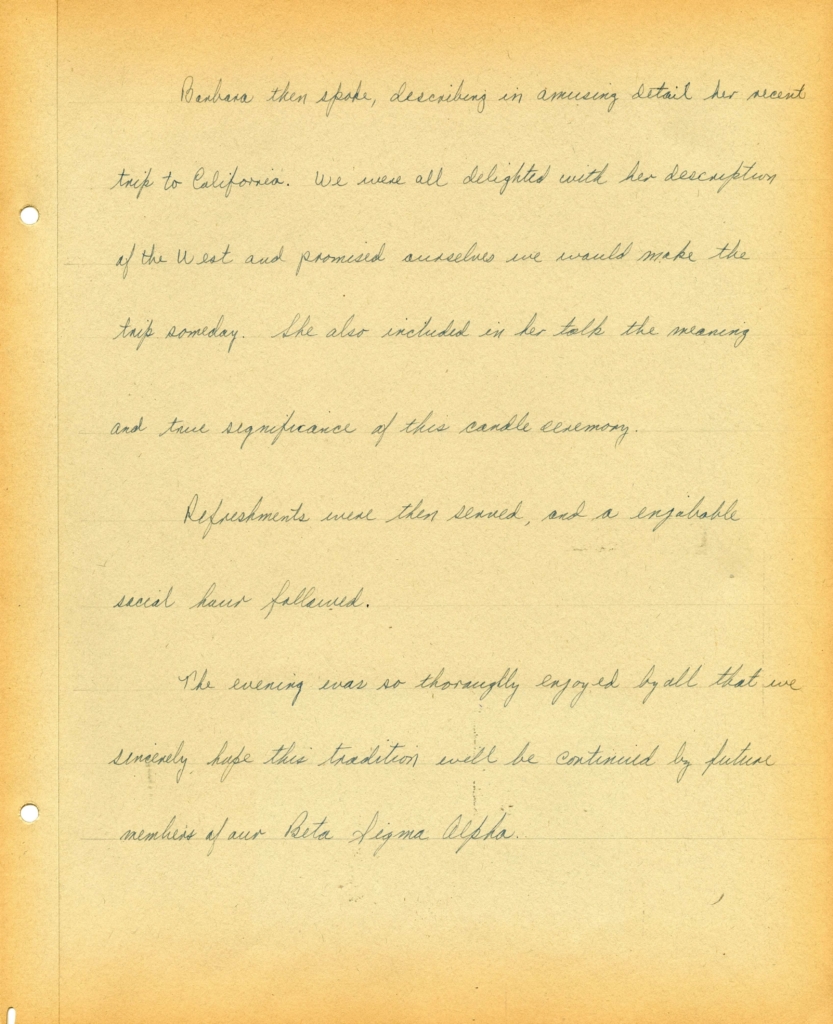 Barbara then spoke, describing in amusing detail her recent
trip to California. We were all delighted with her description
of the West and promised ourselves we would make the
trip someday. She also included in her talk the meaning
and true significance of this candle ceremony.
Refreshments were then served, and a enjobable
social hour followed.
The evening was so thoroughlly enjoyed by all that we
sincerely hope this tradition will be continued by future
members of our Beta Sigma Alpha.